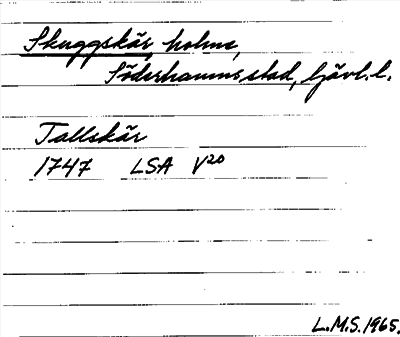 Skuggskär, holme,
Söderhamns stad, Gävl. l.
Tallskär
1747 LSA V20
L.M.S. 1965.